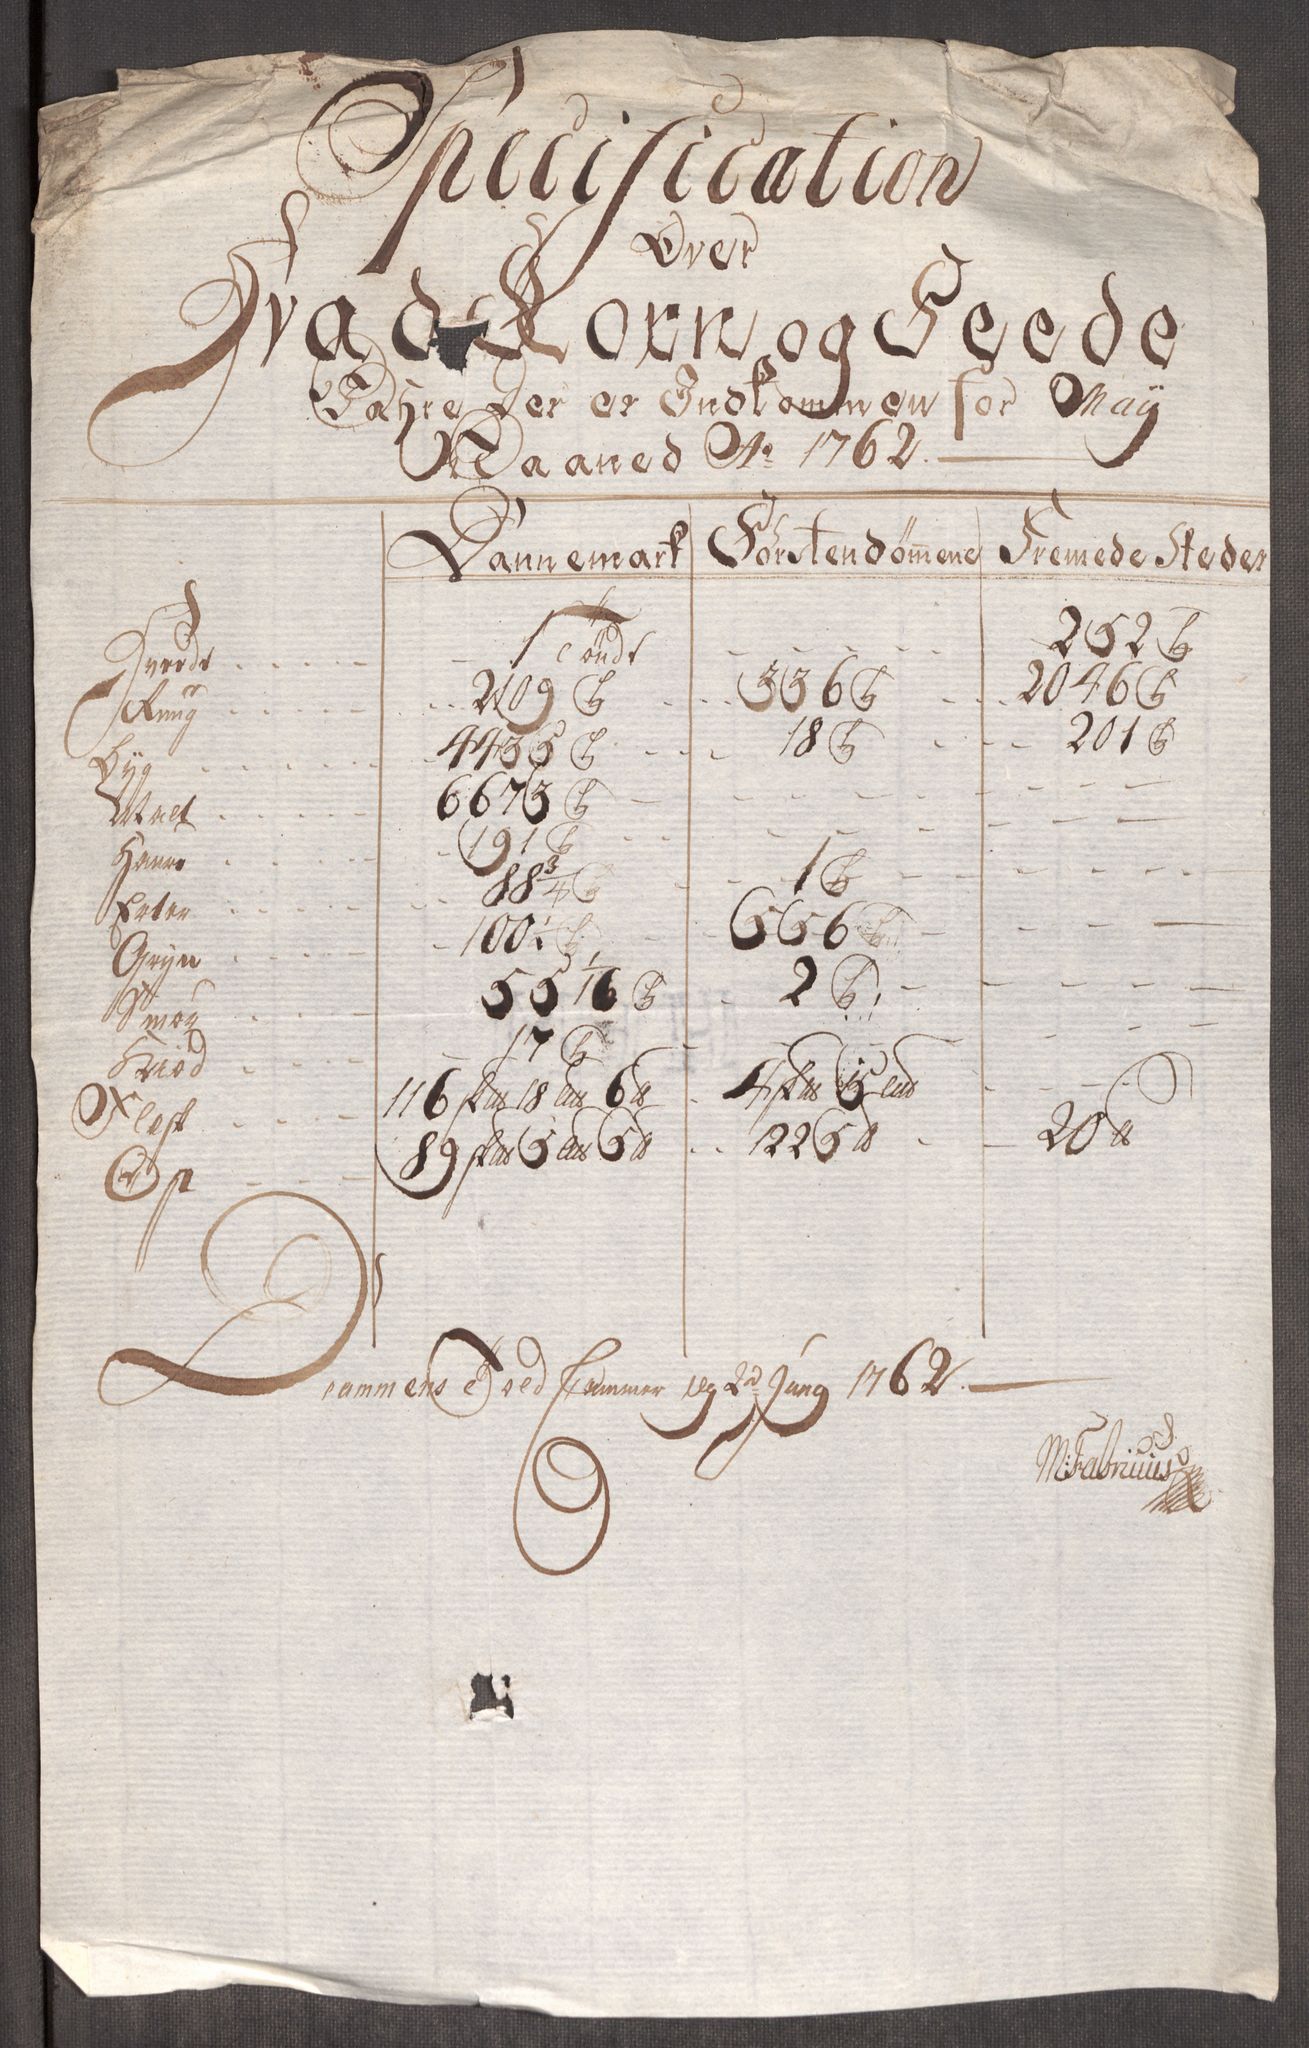 Specification
Over
Hvad Korn og Feede
Vahre Der er Indkommen for Maÿ
Maaned Ao 1762.
Dannemark Förstendömmene Fremede Steder
Hvede 1 Tönde 252 T
Rug 2109 T 336 T 2046 T
Byg 4435 T 18 T 201 T
Malt 6673 T
Havre 191 T
Erter 88 3/4 T 1 T
Gryn 100 1/2 T 556 T
Smör 55 1/16 T 2 T
Kiöd 17 T
Flesk 116 18 6 4 5
Ost 89 5 5 1225 20
Drammens Told Cammer d 2d Juny 1762.
M: Fabricius